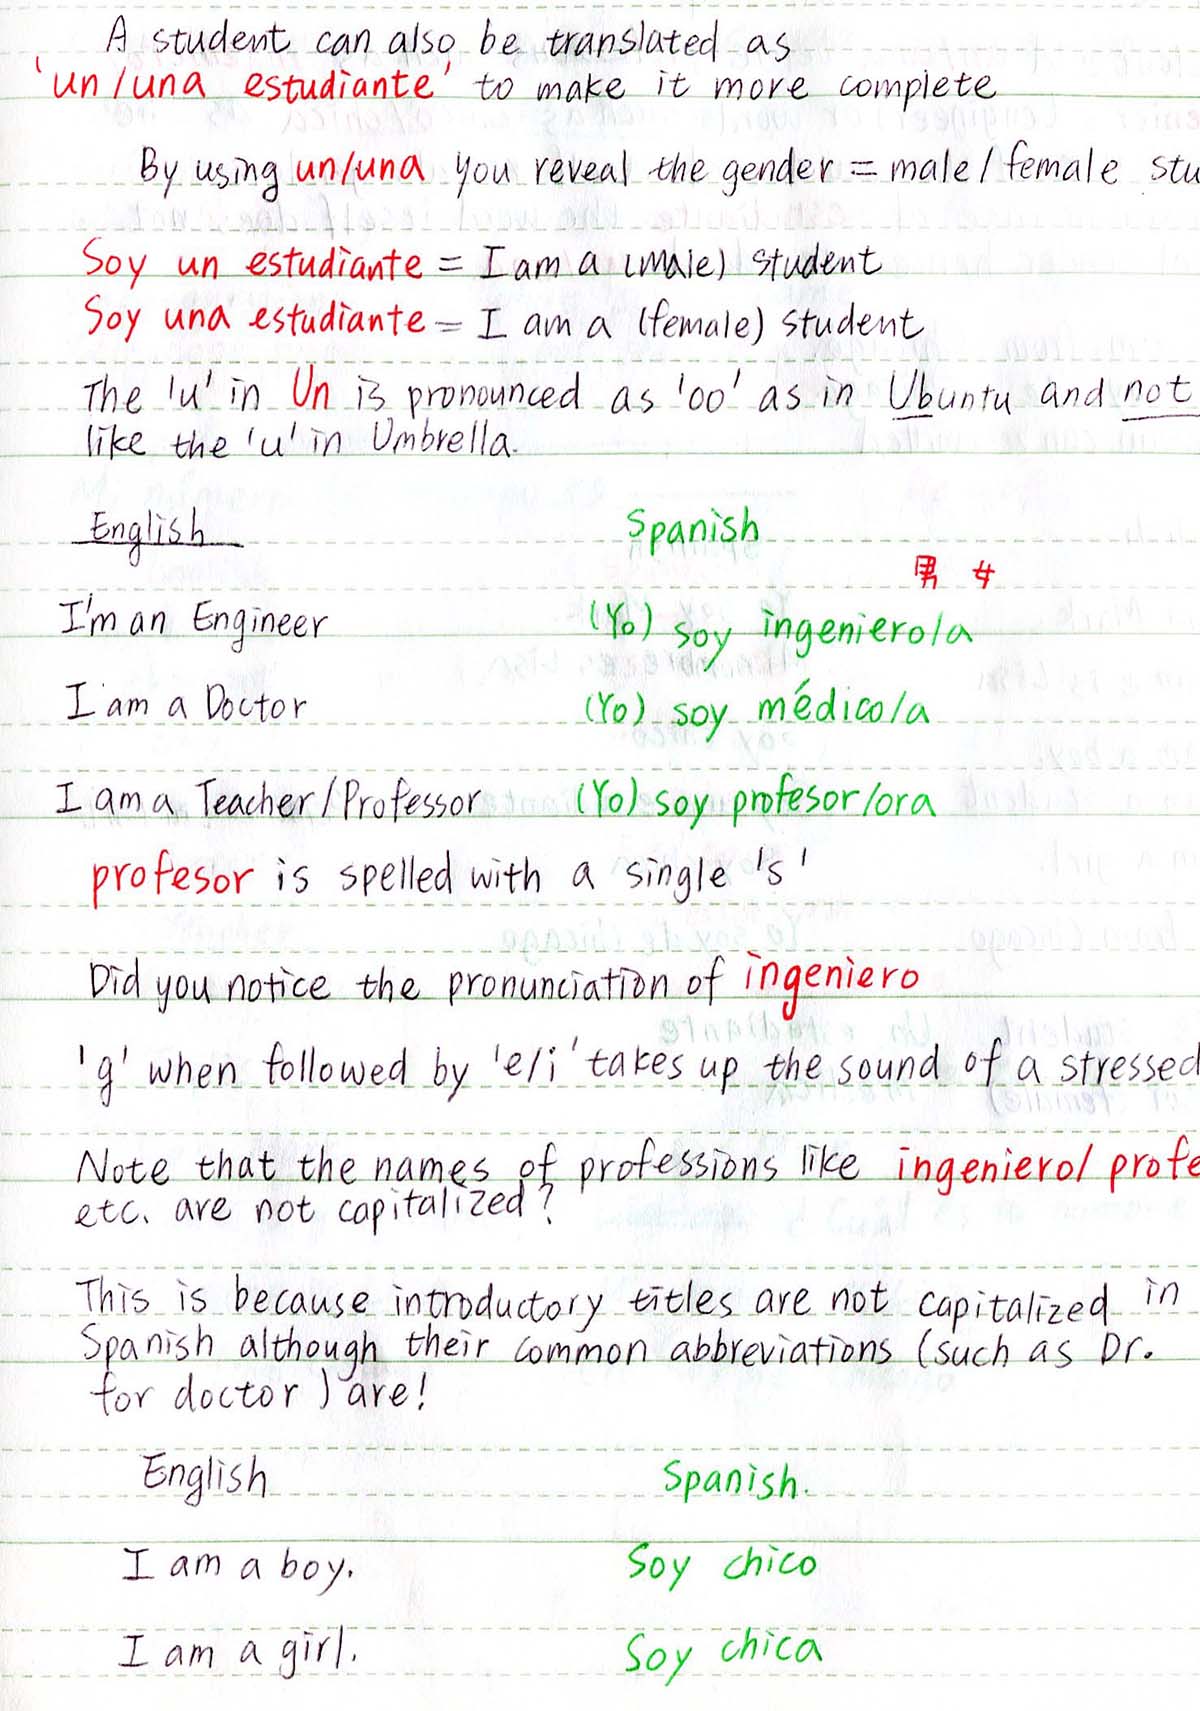 A student can also be translated as
'un/una estudiante' to make it more complete
By using un/una you reveal the gender = male/female stu
Soy un estudiante = I am a (male) student
Soy una estudiante = I am a (female) student
The 'u' in Un is pronounced as 'oo' as in Ubuntu and not
like the 'u' in Umbrella.
English Spanish
男 女
I'm an Engineer (Yo) soy ingeniero/a
I am a Doctor (Yo) soy médico/a
I am a Teacher/Professor (Yo) soy profesor/ora
profesor is spelled with a single 's'
Did you notice the pronunciation of ingeniero
'g' when followed by 'e/i' takes up the sound of a stressed
Note that the names of professions like ingeniero/ profe
etc. are not capitalized?
This is because introductory titles are not capitalized in
Spanish although their common abbreviations (such as Dr.
for doctor) are!
English Spanish.
I am a boy. Soy chico
I am a girl. Soy chica